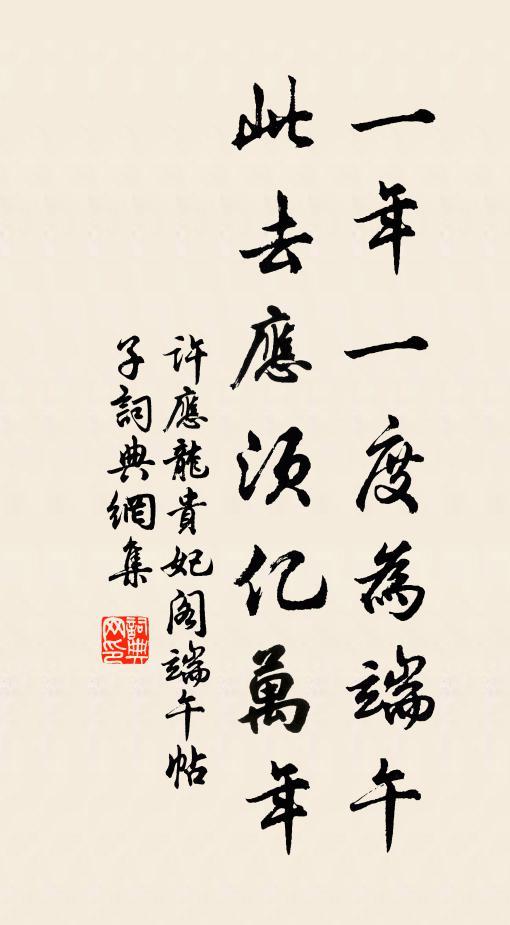 一年一度為端午
此去應須亿萬年
許應龍貴妃阁端午帖
子詞典網集
詞典网印